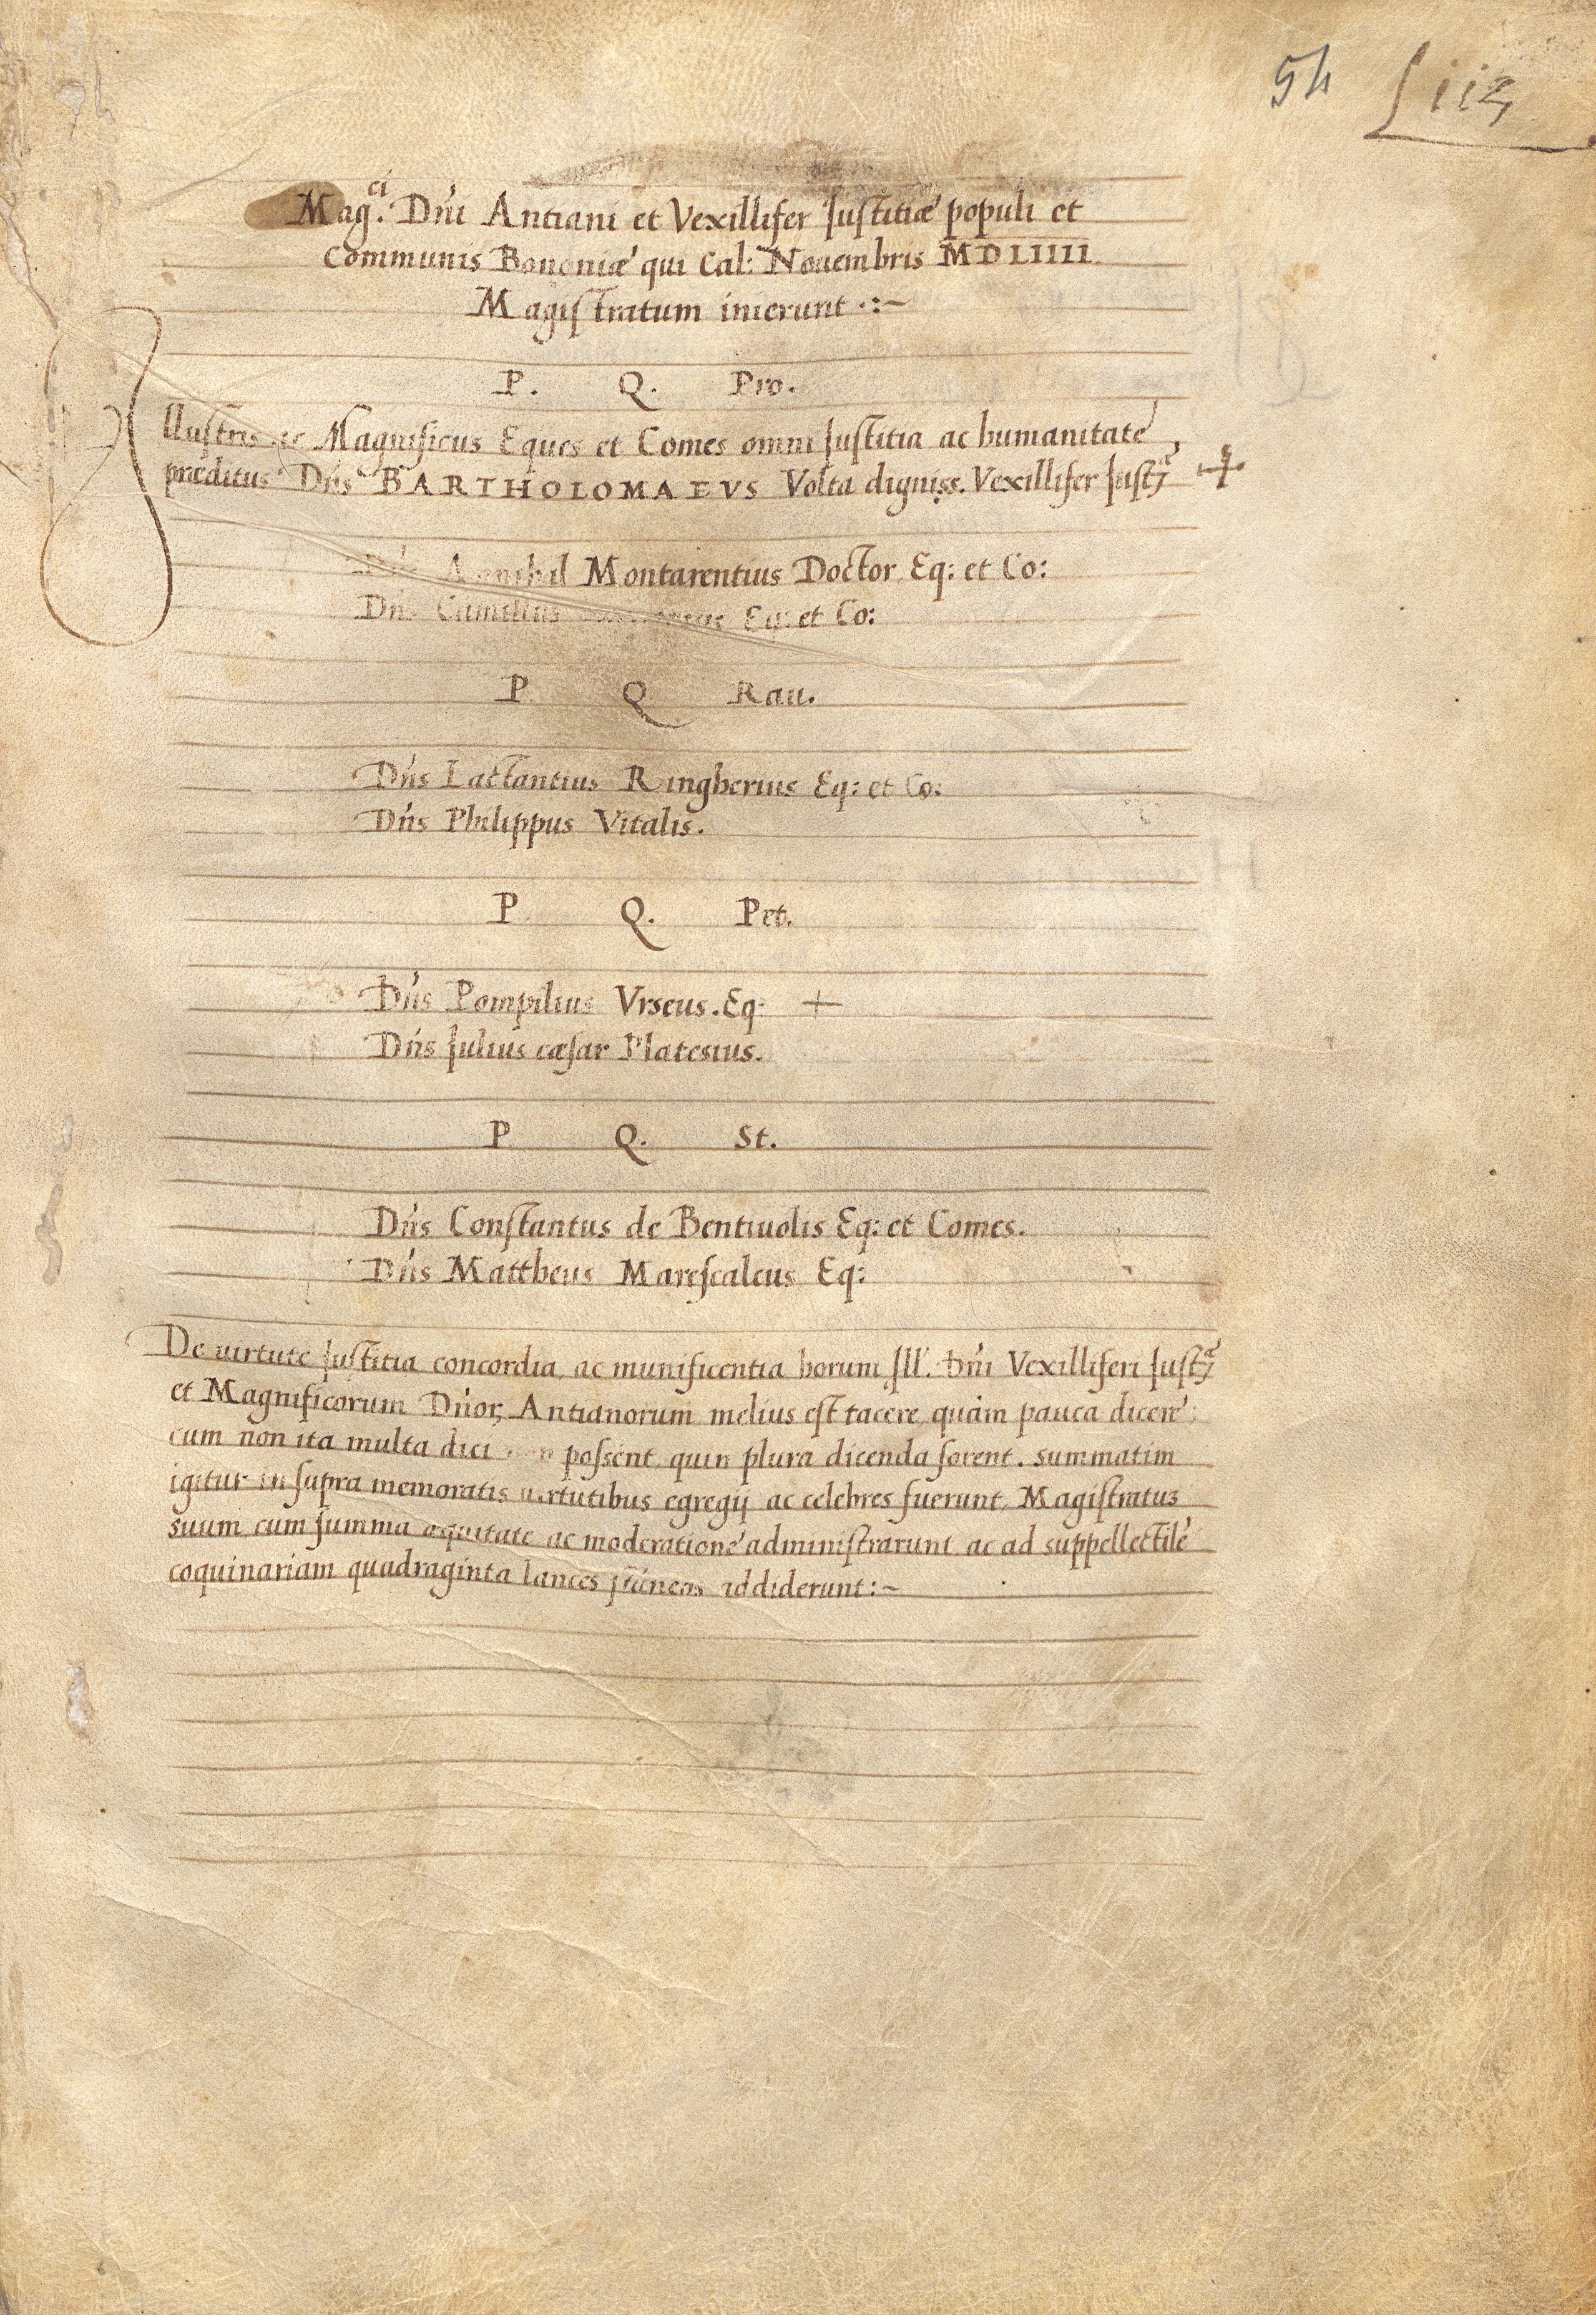 54 Liiz
Mag.ci Dñi Antiani et Vexillifer Justitiæ populi et
Communis Bononiæ qui Cal: Nouembris MDLIIII
Magistratum inierunt .:~
P. Q. Pro.
Illustris ac Magnificus Eques et Comes omni Justitia ac humanitate
præditus Dñs BARTHOLOMAEVS Volta digniss. Vexillifer Justȝ.ª +
Dñs Annibal Montarentius Doctor Eq: et Co:
Dñs Camillus Eq: et Co:
P Q Rau.
Dñs Lactantius Ringherius Eq: et Co:
Dñs Philippus Vitalis.
P Q. Pet.
Dñs Pompilius Vrseus. Eq: +
Dñs Julius cæsar Platesius.
P Q. St.
Dñs Constantus de Bentiuolis Eq: et Comes.
Dñs Mattheus Marescalcus Eq:
De uirtute Justitia concordia, ac munificentia horum Ill. Dñi Vexilliferi Justȝ.ª
et Magnificorum Dñorȝ Antianorum melius est tacere quàm pauca dicere
cum non ita multa dici possent quin plura dicenda forent. summatim
igitur in supra memoratis uirtutibus egregij ac celebres fuerunt Magistratus
suum cum summa æquitate ac moderatione administrarunt ac ad suppellectile
coquinariam quadraginta lances addiderunt:~